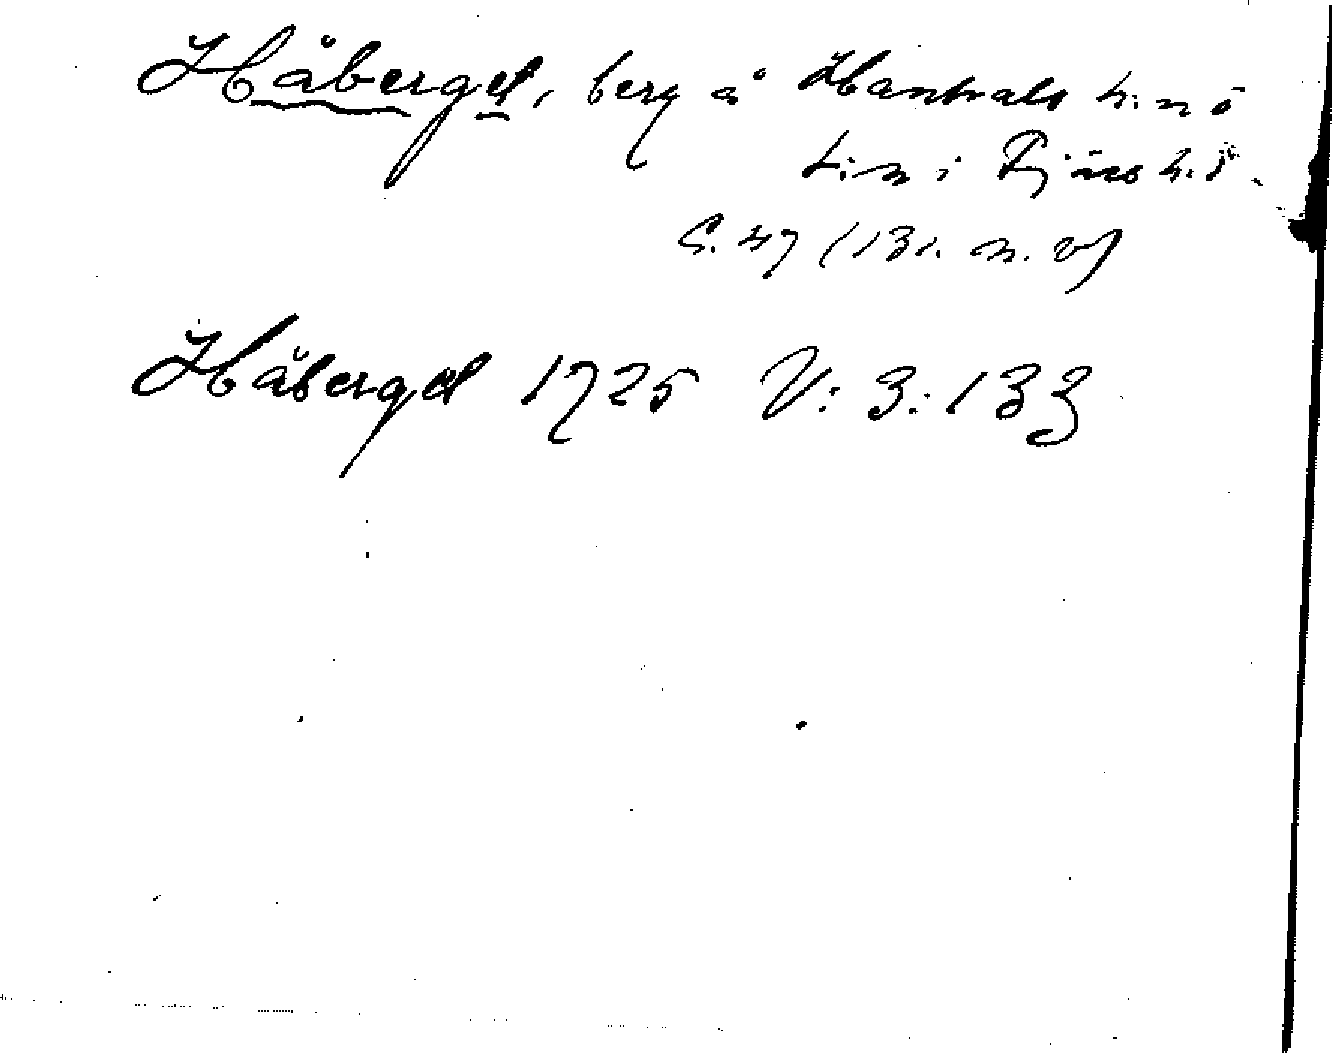 Håberget, berg å Hanhals h:n ö
t:n i Fjäre h:d.
S. 47 (131. n. v)
Håberget 1725 V: 3: 133